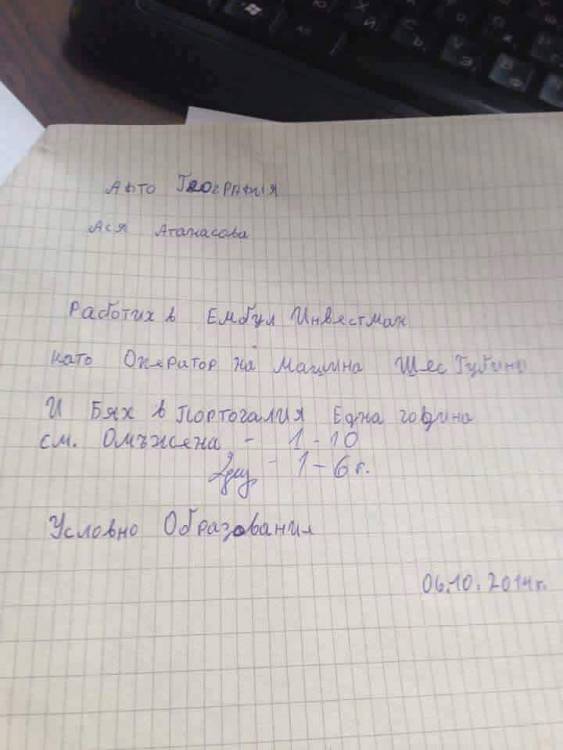 Авто География
Ася Атанасова
Работих в Ембул Инвестман
като Оператор на машина Шес
И Бях в Портогалия Една година
см. Омъжена - 1-10
2 дец - 1-6 г.
Условно Образования
06.10.2014г.